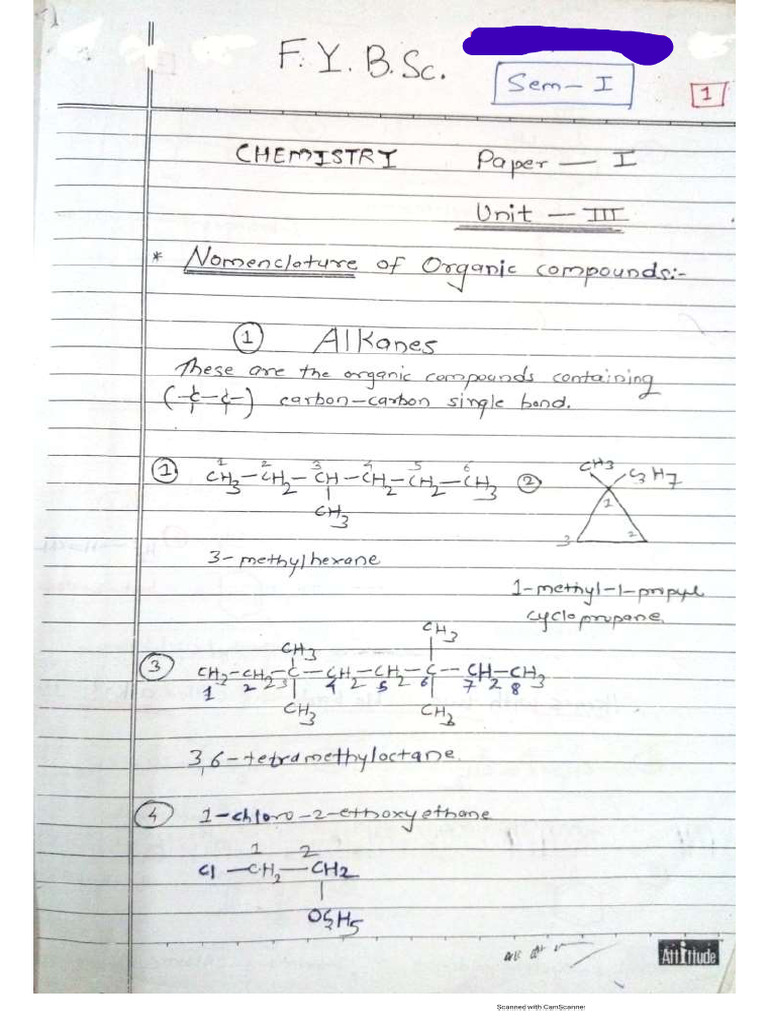 F.Y.B.Sc.
Sem-I
1
CHEMISTRY Paper - I
Unit - III
* Nomenclature of Organic compounds:-
① Alkanes
These are the organic compounds containing
(-C-C-) carbon-carbon single bond.
① CH3-CH2-CH-CH2-CH2-CH3
1 2 3 4 5 6
CH3
3-methylhexane
② CH3 C3H7
1
3 2
1-methyl-1-propyl
cyclopropane.
CH3 CH3
③ CH3-CH2-C-CH2-CH2-C-CH2-CH3
1 2 3 4 5 6 7 8
CH3 CH3
3,6-tetramethyloctane
④ 1-chloro-2-ethoxyethane
1 2
Cl-CH2-CH2
OC2H5
Attitude
Scanned with CamScanner